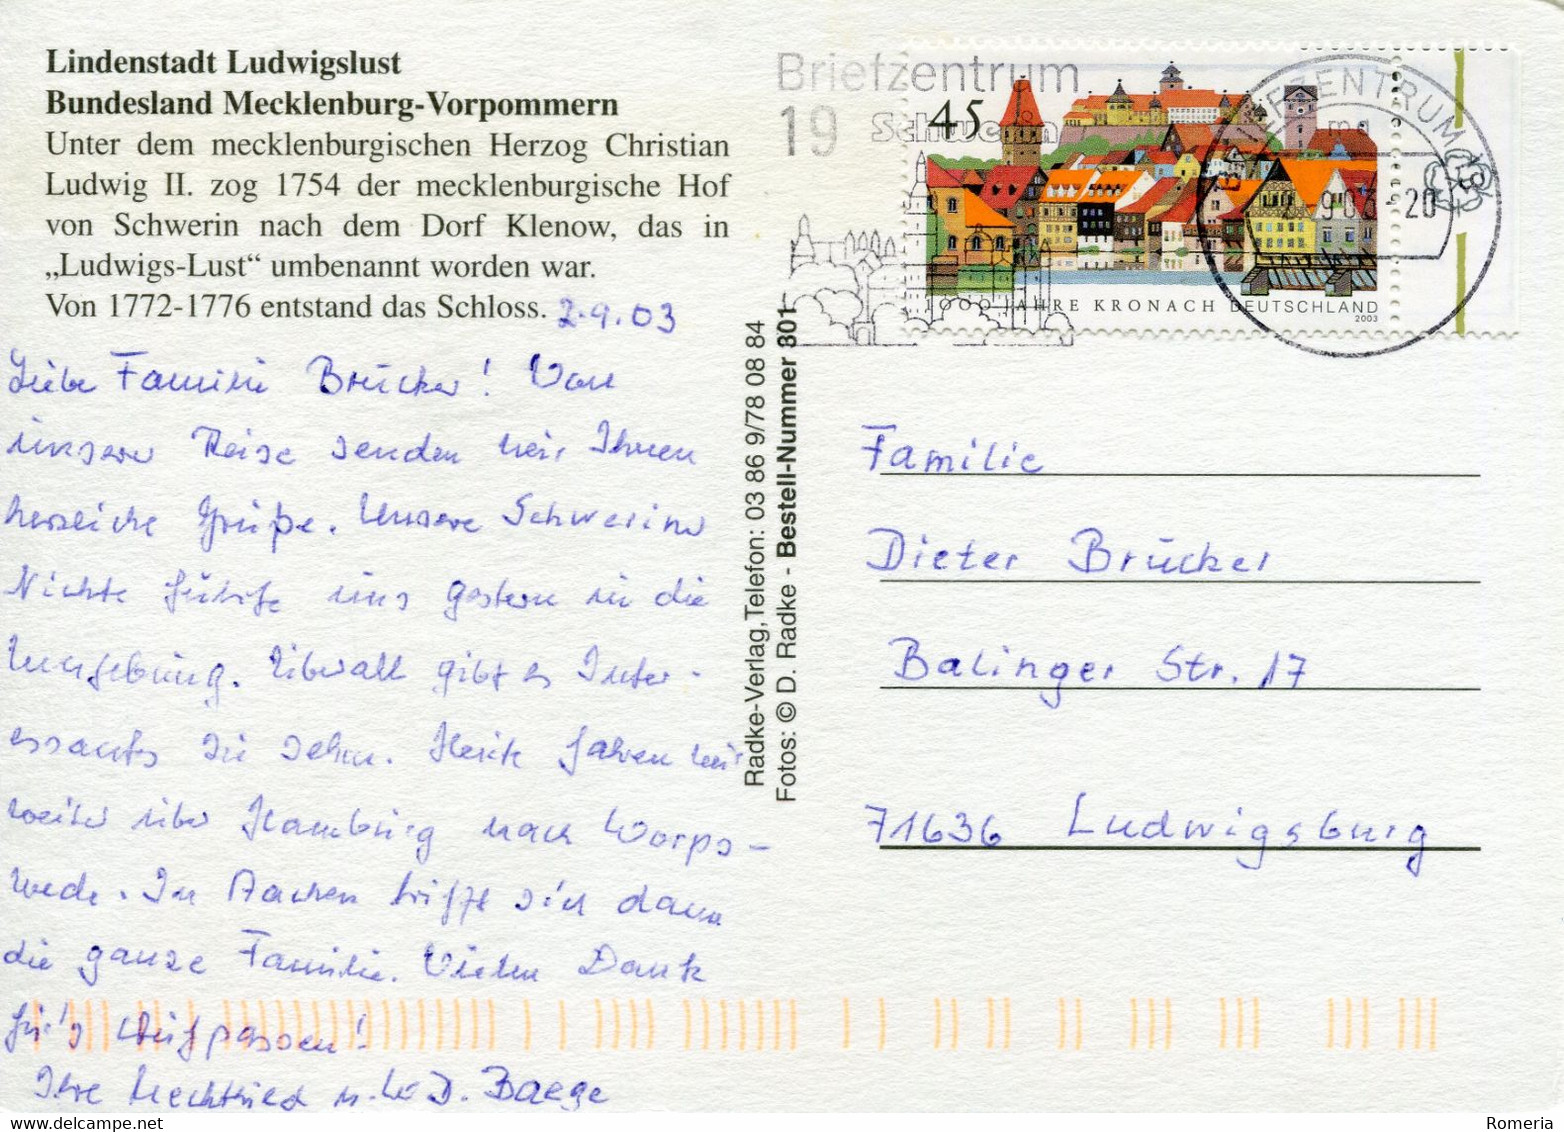 Lindenstadt Ludwigslust
Bundesland Mecklenburg-Vorpommern
Unter dem mecklenburgischen Herzog Christian
Ludwig II. zog 1754 der mecklenburgische Hof
von Schwerin nach dem Dorf Klenow, das in
„Ludwigs-Lust“ umbenannt worden war.
Von 1772-1776 entstand das Schloss.
2.9.03
Liebe Familie Brücker! Von
unserer Reise senden wir Ihnen
herzliche Grüße. Unsere Schweriner
Nichte führte uns gestern in die
Umgebung. Überall gibt es Inter-
essantes zu sehen. Heute fahren wir
weiter über Hamburg nach Worps-
wede. In Aachen trifft sich dann
die ganze Familie. Vielen Dank
für's Aufpassen!
Ihre Mechthild u. W. D. Baege
Radke-Verlag, Telefon: 03 86 9/78 08 84
Fotos: © D. Radke - Bestell-Nummer 801
Briefzentrum
19
Schwerin
45
1000 JAHRE KRONACH DEUTSCHLAND
2003
BRIEFZENTRUM 19
ma
2.9.03-20
Familie
Dieter Brücker
Balinger Str. 17
71636 Ludwigsburg
www.delcampe.net
Romeria